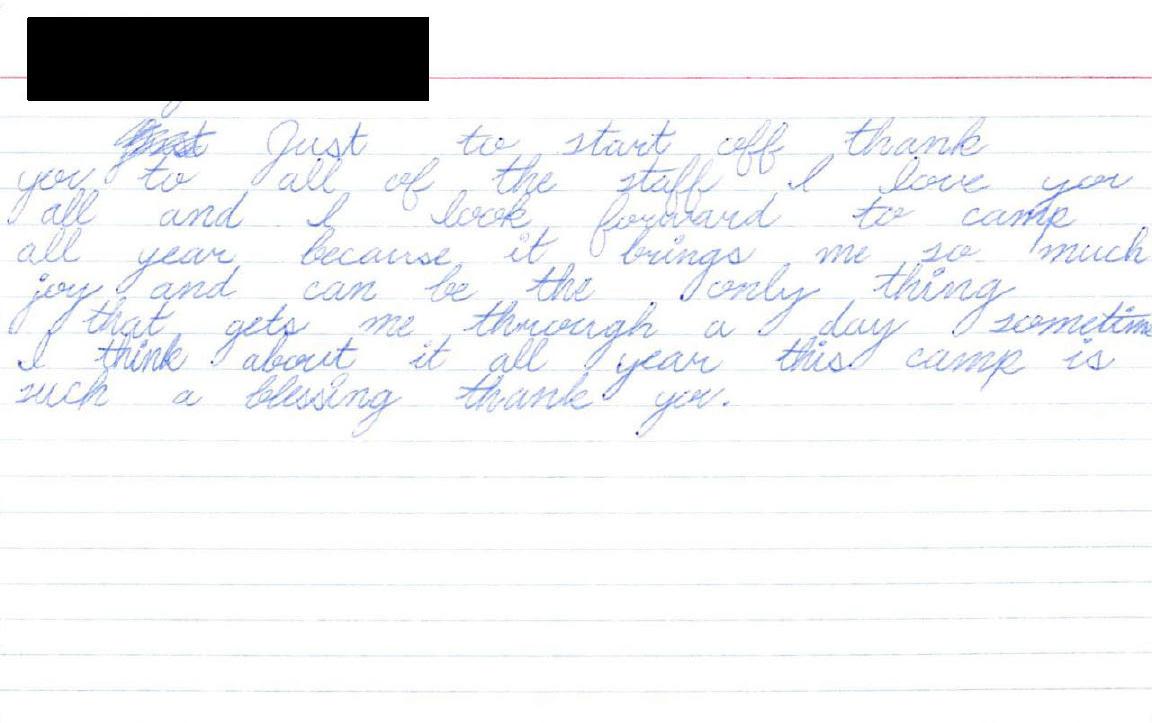 Just to start off thank
you to all of the staff I love you
all and I look forward to camp
all year because it brings me so much
joy and can be the only thing
that gets me through a day sometime
I think about it all year this camp is
such a blessing thank you.